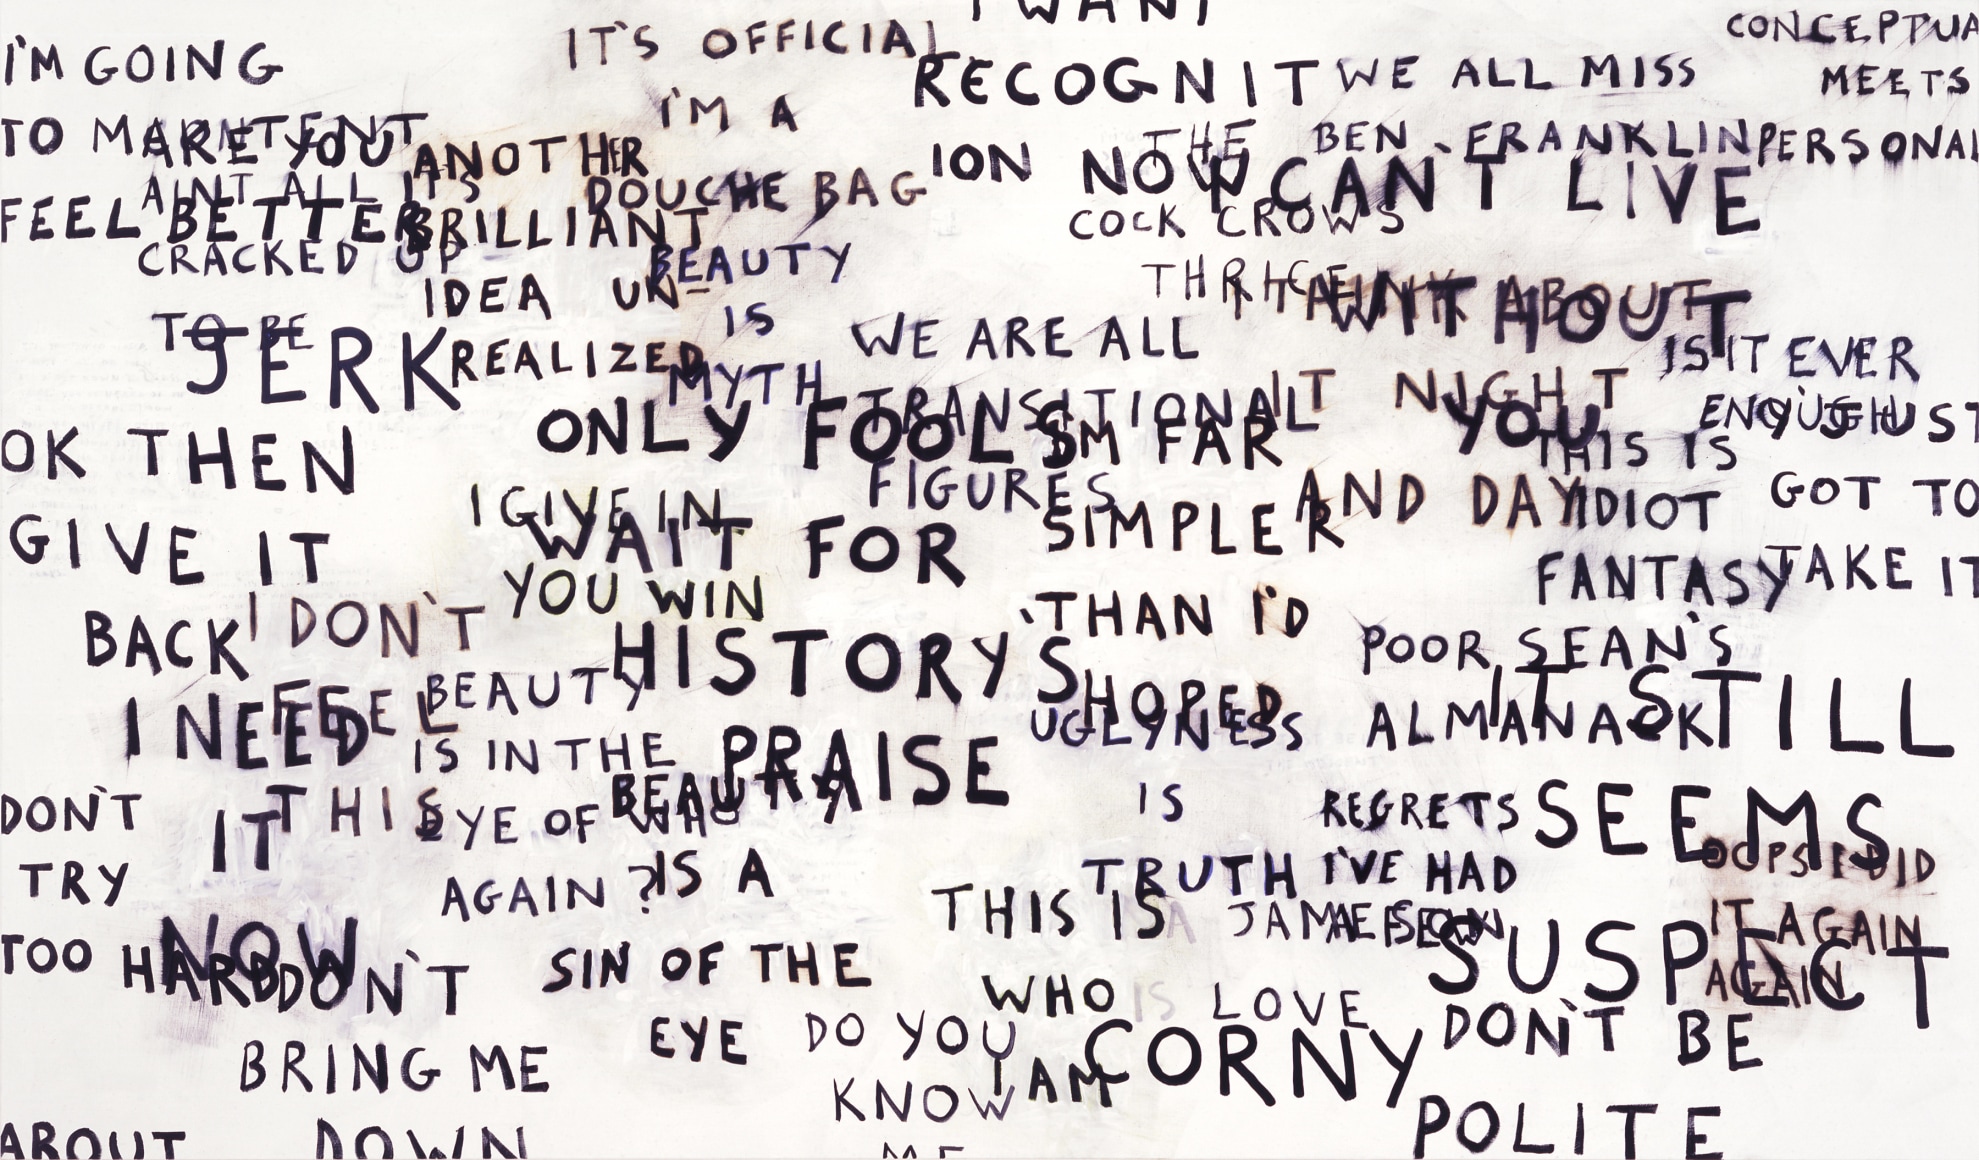 I'M GOING
TO MAKE YOU
FEEL BETTER
ARE YOU
AIN'T ALL IT'S
CRACKED UP
TO BE
JERK
OK THEN
GIVE IT
BACK
IT'S OFFICIAL
I'M A
DOUCHE BAG
ANOTHER
BRILLIANT
IDEA UN-
REALIZED
BEAUTY
IS
MYTH
I WANT
RECOGNIT
ION NOW
WE ALL MISS
BEN FRANKLIN
CONCEPTUA
MEETS
PERSONAL
THE
COCK CROWS
THRICE
I CAN'T LIVE
WITHOUT
YOU
THINK ABOUT
IT NIGHT
AND DAY
IS IT EVER
ENOUGH
YOU JUST
GOT TO
TAKE IT
THIS IS
IDIOT
FANTASY
WE ARE ALL
TRANSITIONAL
FIGURES
ONLY FOOLS
WAIT FOR
HISTORY'S
PRAISE
I'M FAR
SIMPLER
THAN I'D
HOPED
I GIVE IN
YOU WIN
I DON'T
FEEL
THIS
I NEED
IT
NOW
BEAUTY
IS IN THE
EYE OF WHO
AGAIN ?
BEAUTY
IS A
SIN OF THE
EYE
UGLYNESS
IS
TRUTH
POOR SEAN'S
ALMANACK
IT STILL
SEEMS
SUSPECT
REGRETS
I'VE HAD
A FEW
OOPS I DID
IT AGAIN
AGAIN
DON'T
TRY
TOO HARD
DON'T
BRING ME
DOWN
ABOUT
THIS IS
WHO
I AM
IS LOVE
CORNY
DO YOU
KNOW
ME
DON'T BE
POLITE